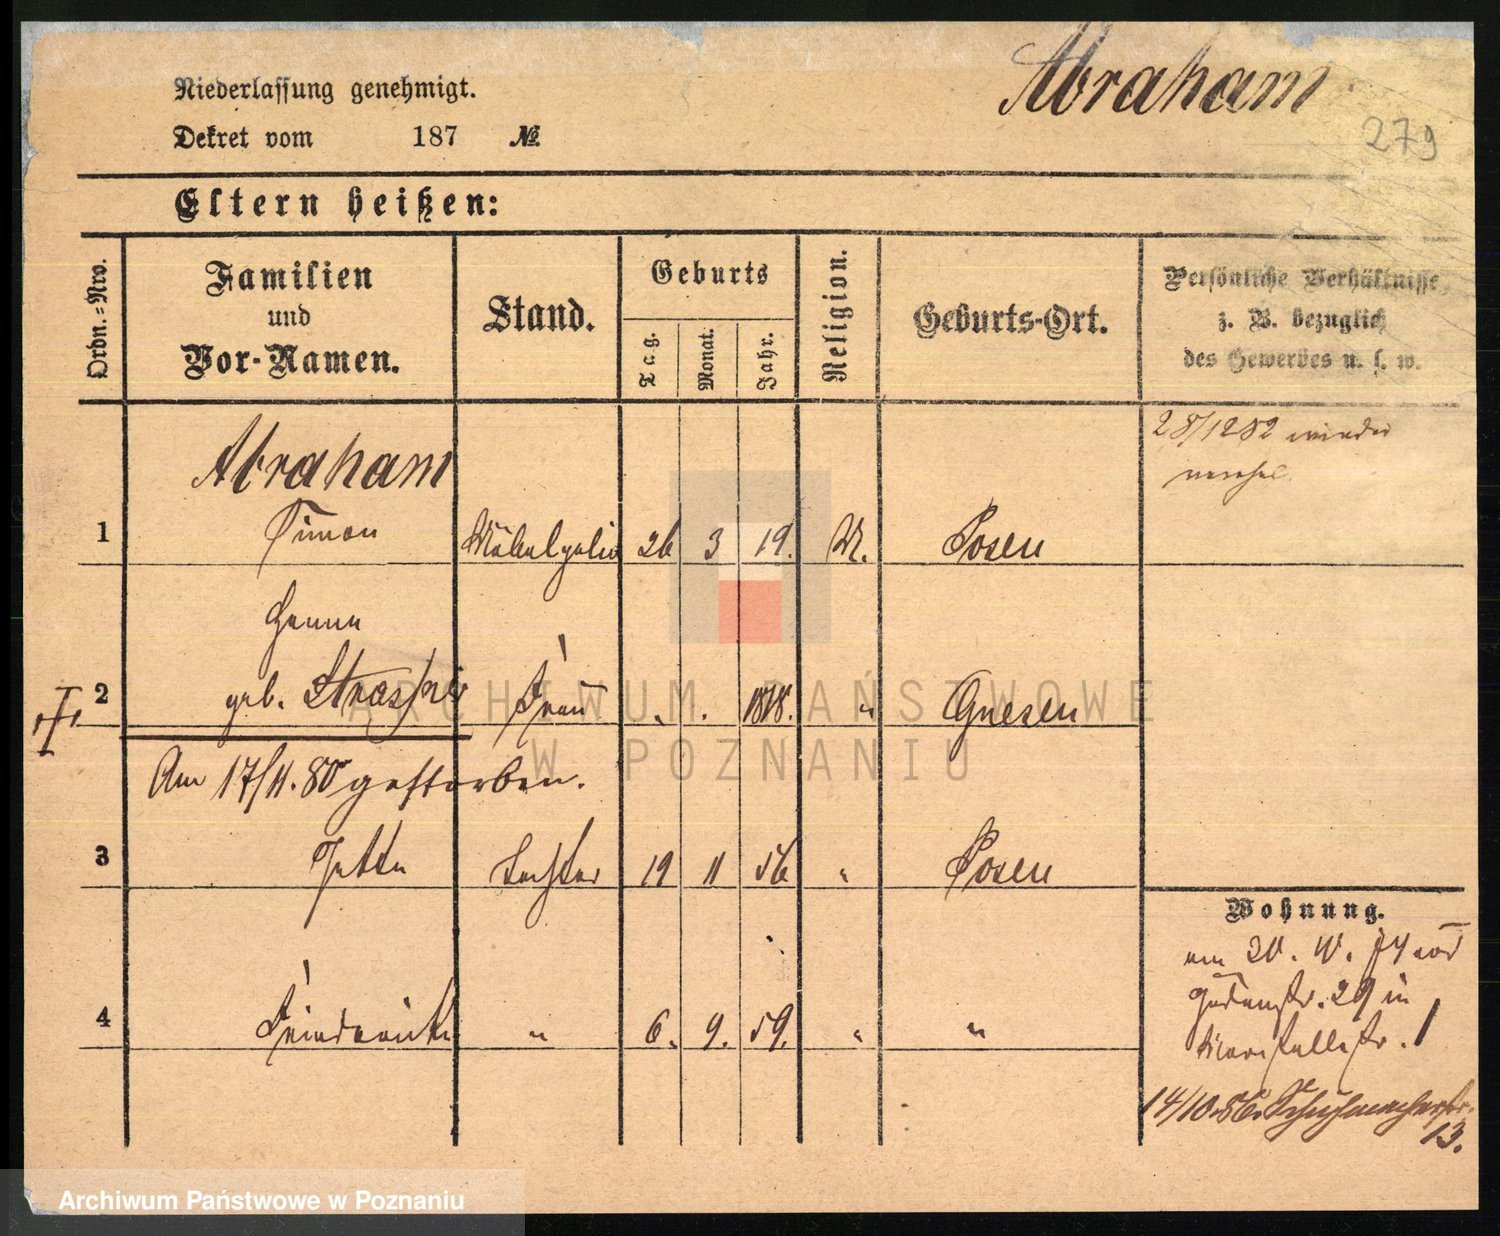 Abraham
279
Niederlassung genehmigt.
Dekret vom 187 №
Eltern heißen:
Ordn.-Nro.
Familien
und
Vor-Namen.
Stand.
Geburts
Tag.
Monat.
Jahr.
Religion.
Geburts-Ort.
Persönliche Verhältnisse,
z. B. bezüglich
des Gewerbes u. s. w.
28/12 82 wieder
Abraham
1 Simon 26 3 19. M. Posen
Hanna
2 geb. Frau . . 1818. " Gnesen
Am 17/11. 80 gestorben.
3 Jette Tochter 19 11 56 " Posen
4 Friederike " 6. 9. 59. " "
Wohnung.
am 20. 10. 74 von
29 in
1
14/10. 86. Schuhmacherstr.
13.
ARCHIWUM PAŃSTWOWE
W POZNANIU
Archiwum Państwowe w Poznaniu